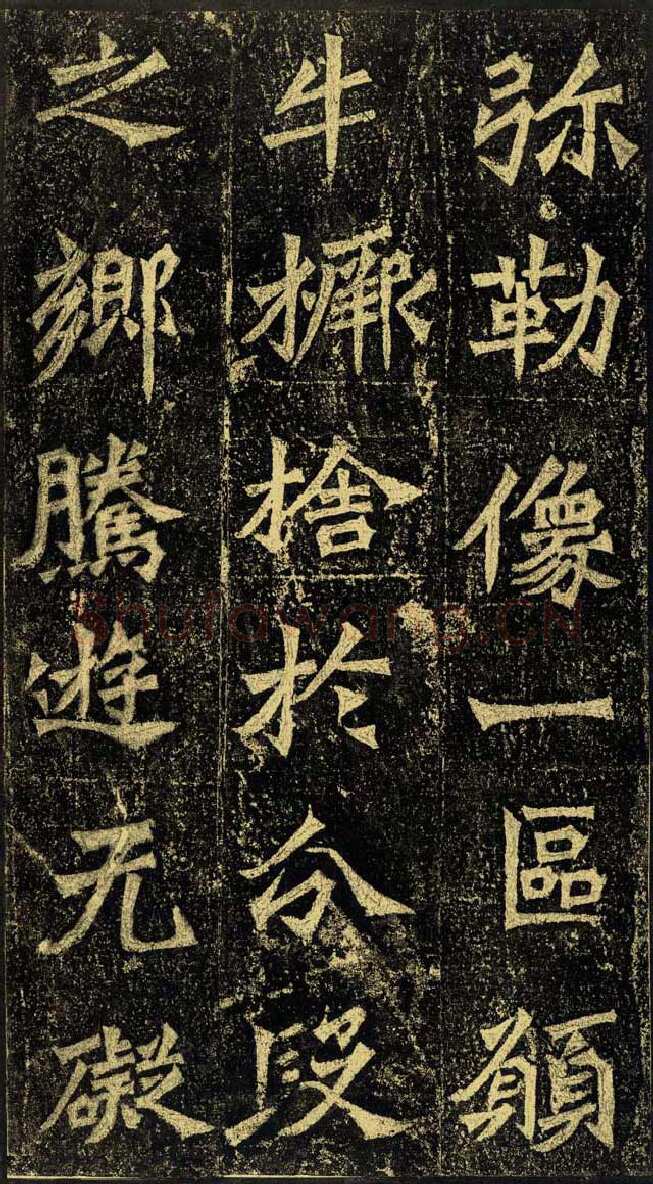 弥勒像一區願
牛橛捨於分段
之鄉騰遊无礙
Shufawang.CN